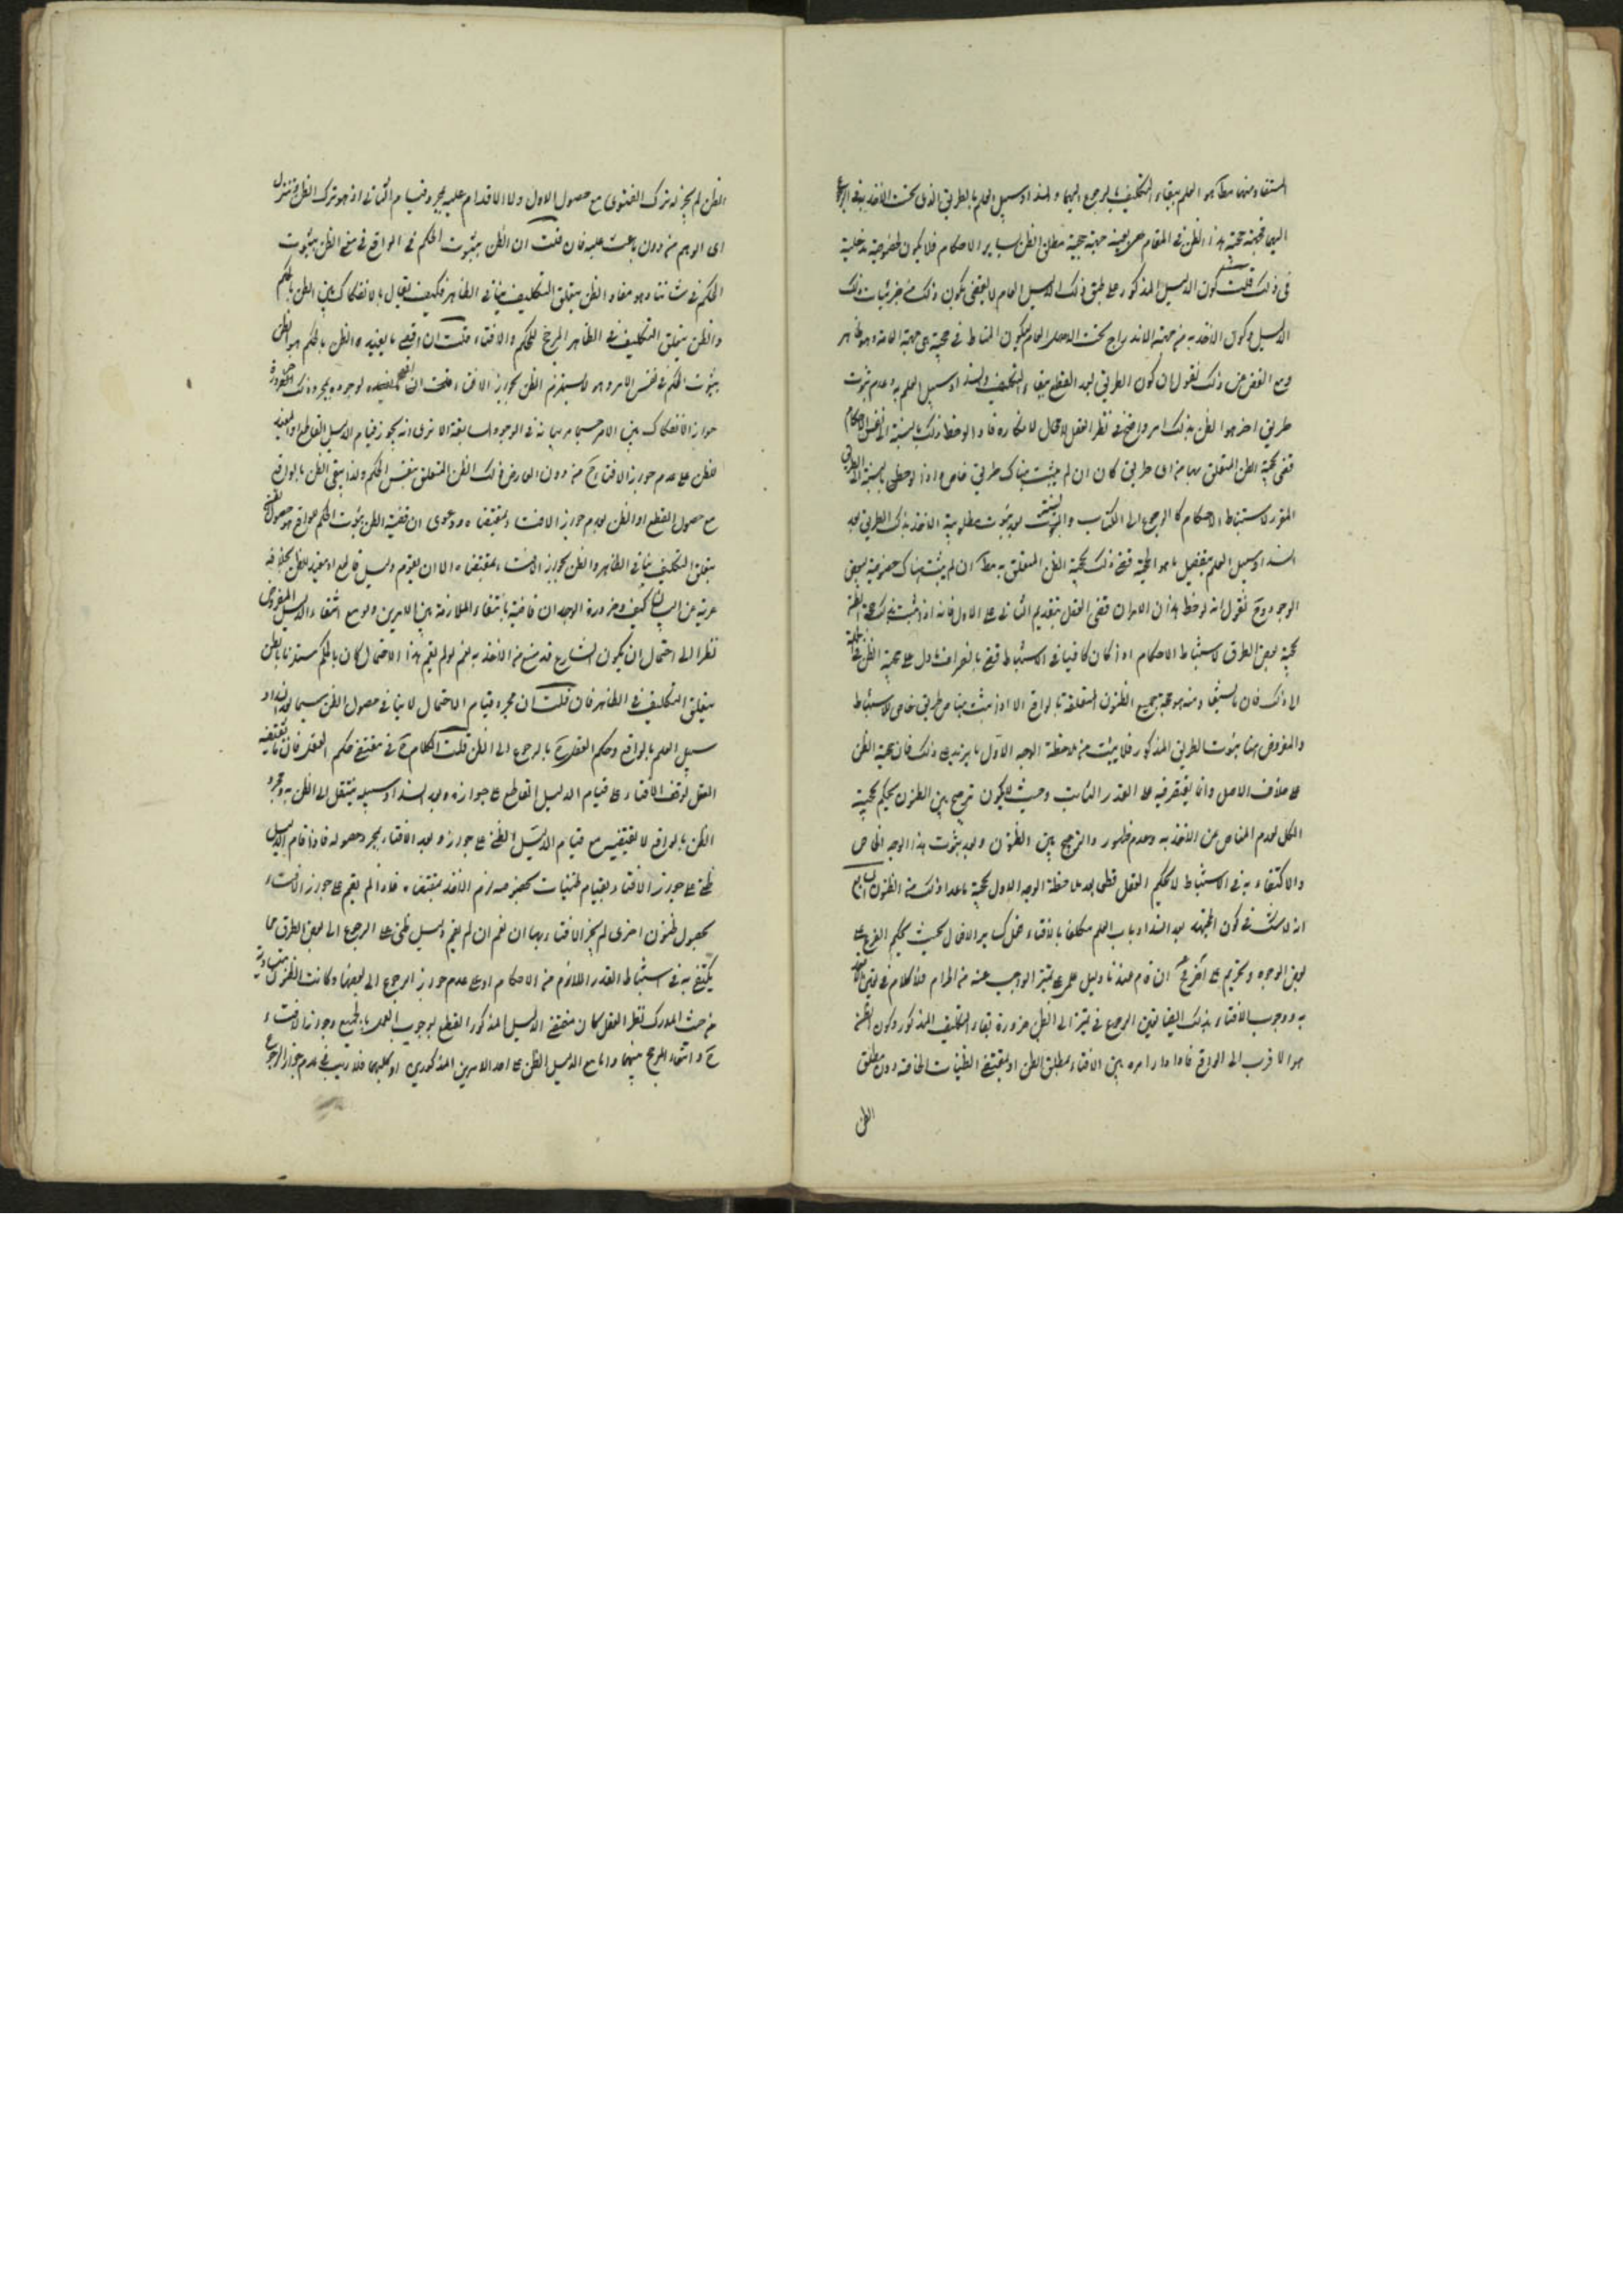 المستفاد منهما مطلقا هو العلم ببقاء التكليف بالرجوع اليهما وانسداد سبيل العلم بالطريق الذى يجب الاخذ به فى الرجوع
اليهما فجهة حجية هذا الظن فى المقام هى بعينه جهة حجية مطلق الظن بساير الاحكام فلا يكون لخصوصيته مدخلية
فى ذلك قلت كون الدليل المذكور على طبق ذلك الدليل العام لا يقضى بكون ذلك من جزئيات ذلك
الدليل وكون الاخذ به من جهة الاندراج تحت الاصل العام ليكون المناط فى حجيته هى جهة العامة وهو ظاهر
ومع الغض عن ذلك نقول ان كون الطريق بعد القطع ببقاء التكليف وانسداد سبيل العلم به وعدم ثبوت
طريق اخر هو الظن بذلك امر واضح فى نظر العقل لا مجال لانكاره فاذا لوحظ ذلك بالنسبة الى نفس الاحكام
قضى بحجية الظن المتعلق بها من اى طريق كان ان لم يثبت هناك طريق خاص واذا لوحظ بالنسبة الى الطريق
المقرر لاستنباط الاحكام كالرجوع الى الكتاب والسنة بعد ثبوت مطلوبية الاخذ بذلك الطريق بعد
انسداد سبيل العلم بتفصيل ما هو الحجة قضى ذلك بحجية الظن المتعلق به مطلقا ان لم يثبت هناك خصوصية لبعض
الوجوه وح نقول انه لو حظ هذان الامران قضى العقل بتقديم الثانى على الاول فانه اذا ثبت بذلك حجية الظن
بحجية بعض الطرق لاستنباط الاحكام اذ كان كافيا فى الاستنباط قضى بانصراف ما دل على حجية الظن فى الجملة
الا ذلك فان المستفاد منه هو حجية جميع الظنون المتعلقة بالواقع الا اذا ثبت هناك طريق خاص للاستنباط
والمفروض هنا ثبوت الطريق المذكور فلا يثبت من ملاحظة الوجه الاول ما يزيد على ذلك فان حجية الظن
على خلاف الاصل وانما يقتصر فيه على القدر الثابت وحيث لا يكون ترجيح بين الظنون يحكم بحجية
الكل لعدم المناص عن الاخذ به وعدم ظهور والترجيح بين الظنون وبعد ثبوت هذا الوجه الخاص
والاكتفاء به فى الاستنباط لا يحكم العقل قطعا بعد ملاحظة الوجه الاول بحجية ما عدا ذلك من الظنون السابع
انه لا شك فى كون المجتهد بعد انسداد باب العلم مكلفا بالافتاء فعل كساير الافعال بحيث يحكم الشرع على
بعض الوجوه وتحريم على اخر وح ان قام عندنا دليل علمى على تميز الواجب عنه من الحرام فلا كلام فى تعين الاخذ
به ووجوب الافتاء بذلك ايضا تعين الرجوع فى تميز الى الظن ضرورة بقاء التكليف المذكور وكون الظن
هو الاقرب الى الواقع فاذا دار امره بين الافتاء بمطلق الظن او بمقتضى الظنيات الخاصة دون مطلق
الظن
الظن لم يجز له ترك الفتوى مع حصول الاول ولا الاقدام عليه بمجرد قيام الثانى اذ هو ترك الظن وتنزل
الى الوهم من دون باعث عليه فان قلت ان الظن بثبوت الحكم فى الواقع فى معنى الظن بثبوت
الحكم فى شاننا وهو مفاد الظن بتعلق التكليف بنا فى الظاهر فكيف يقال بالانفكاك بين الظن بالحكم
والظن بتعلق التكليف فى الظاهر المرجح للحكم والافتاء قلت ان اقصى ما يفيده الظن بالحكم هو الظن
بثبوت الحكم فى نفس الامر وهو لا يستلزم الظن بجواز الافتاء لوجوه بمجرد ذلك ضرورة
جواز الانفكاك بين الامرين حسبما مر بيانه فى الوجوه السابقة الا ترى انه يجوز قيام الدليل القاطع او المفيد
للظن على عدم جواز الافتاء ح من دون ان يعارض ذلك الظن المتعلق بنفس الحكم ولذا يبقى الظن بالواقع
مع حصول القطع او الظن بعدم جواز الافتاء بمقتضاه ودعوى ان قضية الظن بثبوت الحكم فى الواقع هو حصول الظن
بتعلق التكليف بنا فى الظاهر والظن بجواز الافتاء بمقتضاه الا ان يقوم دليل قاطع او مفيد للظن بخلافه
عرية عن البيان كيف وضرورة الوجدان قاضية بانتفاء الملازمة بين الامرين ولو مع انتفاء الدليل المفروض
نظرا الى احتمال ان يكون الشارع قد منع من الاخذ به نعم لو لم يقم هذا الاحتمال كان الحكم مستلزما بالظن
بتعلق التكليف فى الظاهر فان قلت ان مجرد قيام الاحتمال لا ينافى حصول الظن سيما بعد انسداد
سبيل العلم بالواقع وحكم العقل ح بالرجوع الى الظن قلت الكلام ح فى مقتضى حكم العقل فان ما يقتضيه
العقل توقف الافتاء على قيام الدليل القاطع على جوازه وبعد انسداد سبيله ينتقل الى الظن به ومجرد
الظن بالواقع لا يقتضيه مع قيام الدليل الظنى على جواز وبعد الافتاء بمجرد حصوله فاذا قام الدليل
ظنى على جواز الافتاء بقيام ظنيات مخصوصة لزم الاخذ بمقتضاه فاذا لم يقم على جواز الافتاء
بحصول ظنون اخرى لم يجز الافتاء بها نعم ان لم يقم دليل ظنى على الرجوع الى بعض الطرق مما
يكتفى به فى استنباط القدر اللازم من الاحكام او على عدم جواز الرجوع الى بعضها وكانت الظنون متساوية
من حيث المدرك فى نظر العقل كان مقتضى الدليل المذكور القطع بوجوب العمل بالجميع وجواز الافتاء
ح وانتفاء المرجح بينهما واما مع الدليل الظنى على احد الامرين المذكورين او كليهما فلا ريب فى عدم جواز الرجوع